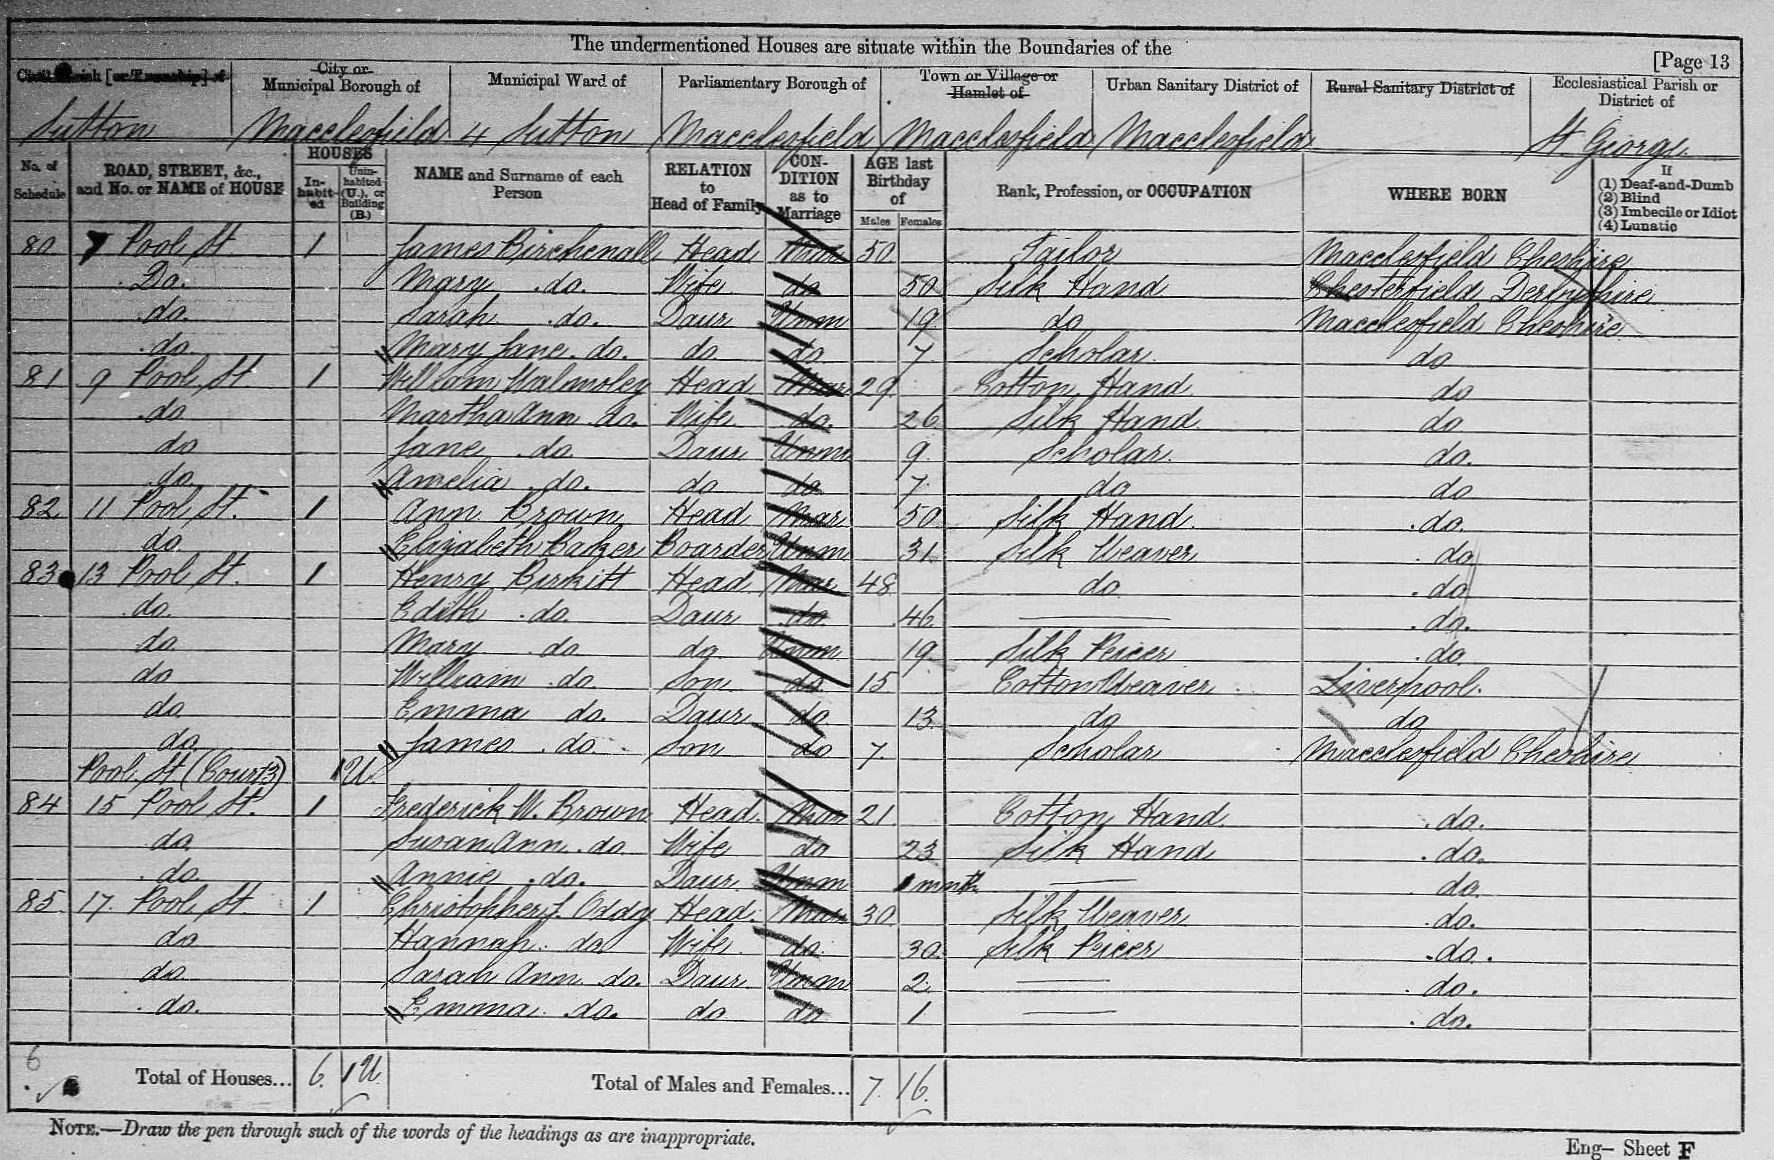 The undermentioned Houses are situate within the Boundaries of the
[Page 13
Civil Parish [or Township] of | City or Municipal Borough of | Municipal Ward of | Parliamentary Borough of | Town or Village or Hamlet of | Urban Sanitary District of | Rural Sanitary District of | Ecclesiastical Parish or District of
Sutton | Macclesfield | 4 Sutton | Macclesfield | Macclesfield | Macclesfield | St. George
No. of Schedule | ROAD, STREET, &c., and No. or NAME of HOUSE | HOUSES In-habit-ed | Unin-habited (U.), or Building (B.) | NAME and Surname of each Person | RELATION to Head of Family | CON-DITION as to Marriage | AGE last Birthday of Males Females | Rank, Profession, or OCCUPATION | WHERE BORN | If (1) Deaf-and-Dumb (2) Blind (3) Imbecile or Idiot (4) Lunatic
80 7 Pool St. 1 James Birchenall Head Mar 50 Tailor Macclesfield Cheshire
Do. Mary do. Wife do 50 Silk Hand Chesterfield Derbyshire
do. Sarah do. Daur Unm 19 do Macclesfield Cheshire
do. Mary Jane do. do do 7 Scholar do
81 9 Pool St 1 William Walmsley Head Mar 29 Cotton Hand do
do Martha Ann do. Wife do. 26 Silk Hand do
do Jane do. Daur Unm 9 Scholar do.
do. Amelia do. do do 7 do do
82 11 Pool St. 1 Ann Brown Head Mar 50 Silk Hand do.
do Elizabeth Baker Boarder Unm 31 Silk Weaver do
83 13 Pool St. 1 Henry Birkitt Head Mar 48 do do
do. Edith do. Daur do. 46 — do.
do Mary do. do. Unm 19 Silk Peicer do
do William do. Son do 15 Cotton Weaver Liverpool.
do. Emma do. Daur do 13 do do
do James do. Son do 7 Scholar Macclesfield Cheshire
Pool St (Court 3) 1U.
84 15 Pool St. 1 Frederick W. Brown Head Mar 21 Cotton Hand do.
do. Susan Ann do. Wife do 23 Silk Hand do.
do. Annie do. Daur Unm 1 month — do
85 17 Pool St. 1 Christopher J. Oddy Head Mar 30 Silk Weaver do.
do Hannah do Wife do. 30 Silk Peicer do.
do. Sarah Ann do. Daur Unm 2 — do.
do. Emma do. do do 1 — do.
6
Total of Houses... 6 1U. Total of Males and Females... 7 16
NOTE.—Draw the pen through such of the words of the headings as are inappropriate.
Eng— Sheet F